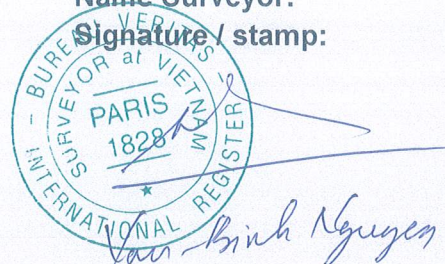 Name Surveyor:
Signature / stamp:
BUREAU VERITAS - INTERNATIONAL REGISTER -
SURVEYOR at VIETNAM
PARIS
1828
Van-Binh Nguyen